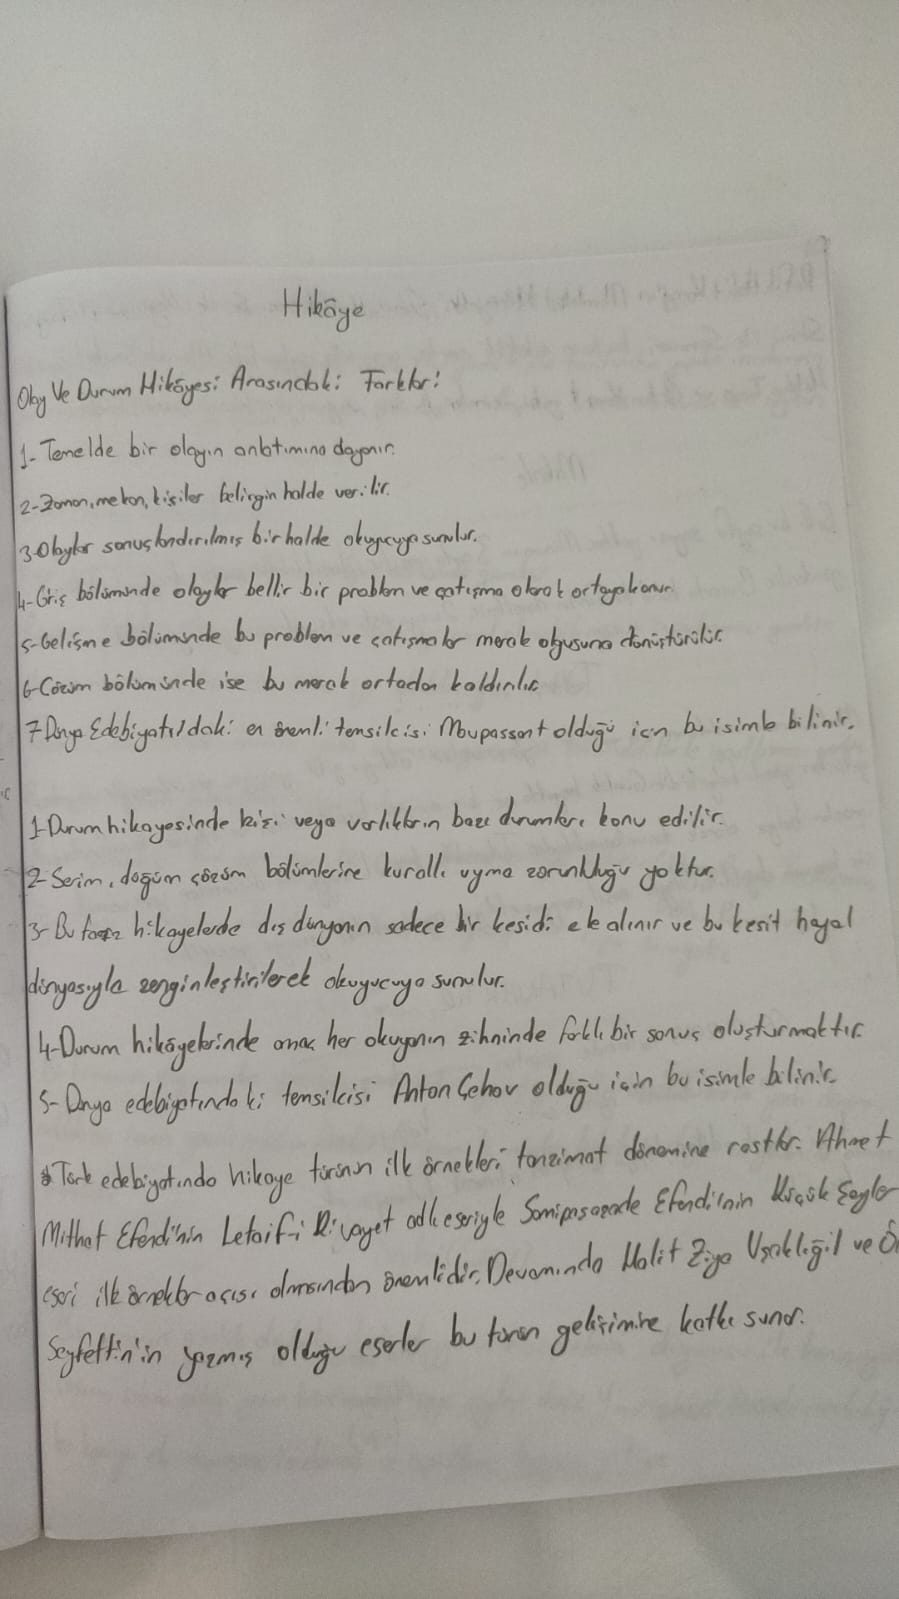 Hikâye
Olay Ve Durum Hikâyesi Arasındaki Farklar:
1- Temelde bir olayın anlatımına dayanır.
2- Zaman, mekan, kişiler belirgin halde verilir.
3- Olaylar sonuçlandırılmış bir halde okuyucuya sunulur.
4- Giriş bölümünde olaylar bellir bir problem ve çatışma olarak ortaya konur.
5- Gelişme bölümünde bu problem ve çatışmalar merak olgusuna dönüştürülür.
6- Çözüm bölümünde ise bu merak ortadan kaldırılır.
7- Dünya Edebiyatı'ndaki en önemli temsilcisi Maupassant olduğu için bu isimle bilinir.
1- Durum hikayesinde kişi veya varlıkların bazı durumları konu edilir.
2- Serim, düğüm çözüm bölümlerine kurallı uyma zorunluğu yoktur.
3- Bu hikayelerde dış dünyanın sadece bir kesidi ele alınır ve bu kesit hayal
dünyasıyla zenginleştirilerek okuyucuya sunulur.
4- Durum hikâyelerinde amaç her okuyanın zihninde farklı bir sonuç oluşturmaktır.
5- Dünya edebiyatındaki temsilcisi Anton Çehov olduğu için bu isimle bilinir.
* Türk edebiyatında hikaye türünün ilk örnekleri tanzimat dönemine rastlar. Ahmet
Mithat Efendi'nin Letaif-i Rivayet adlı eseriyle Samipaşazade Efendi'nin Küçük Şeyler
eseri ilk örnekler açısı olmasından önemlidir. Devamında Halit Ziya Uşaklıgil ve
Seyfettin'in yazmış olduğu eserler bu türün gelişimine katkı sunar.